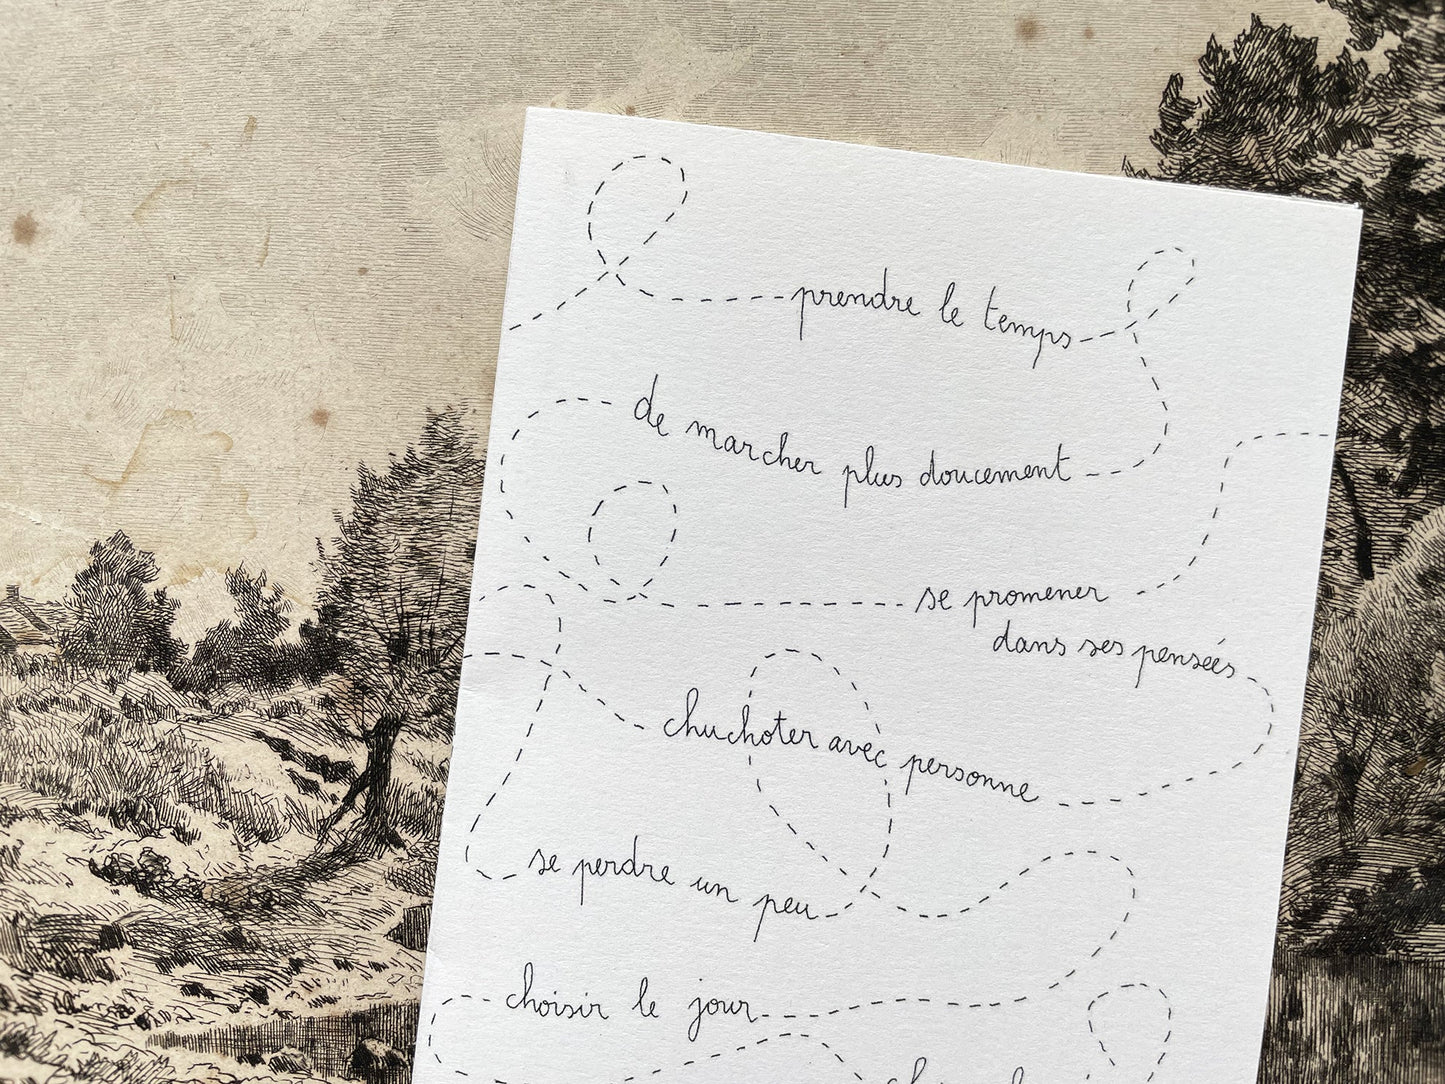 prendre le temps
de marcher plus doucement
se promener
dans ses pensées
chuchoter avec personne
se perdre un peu
choisir le jour